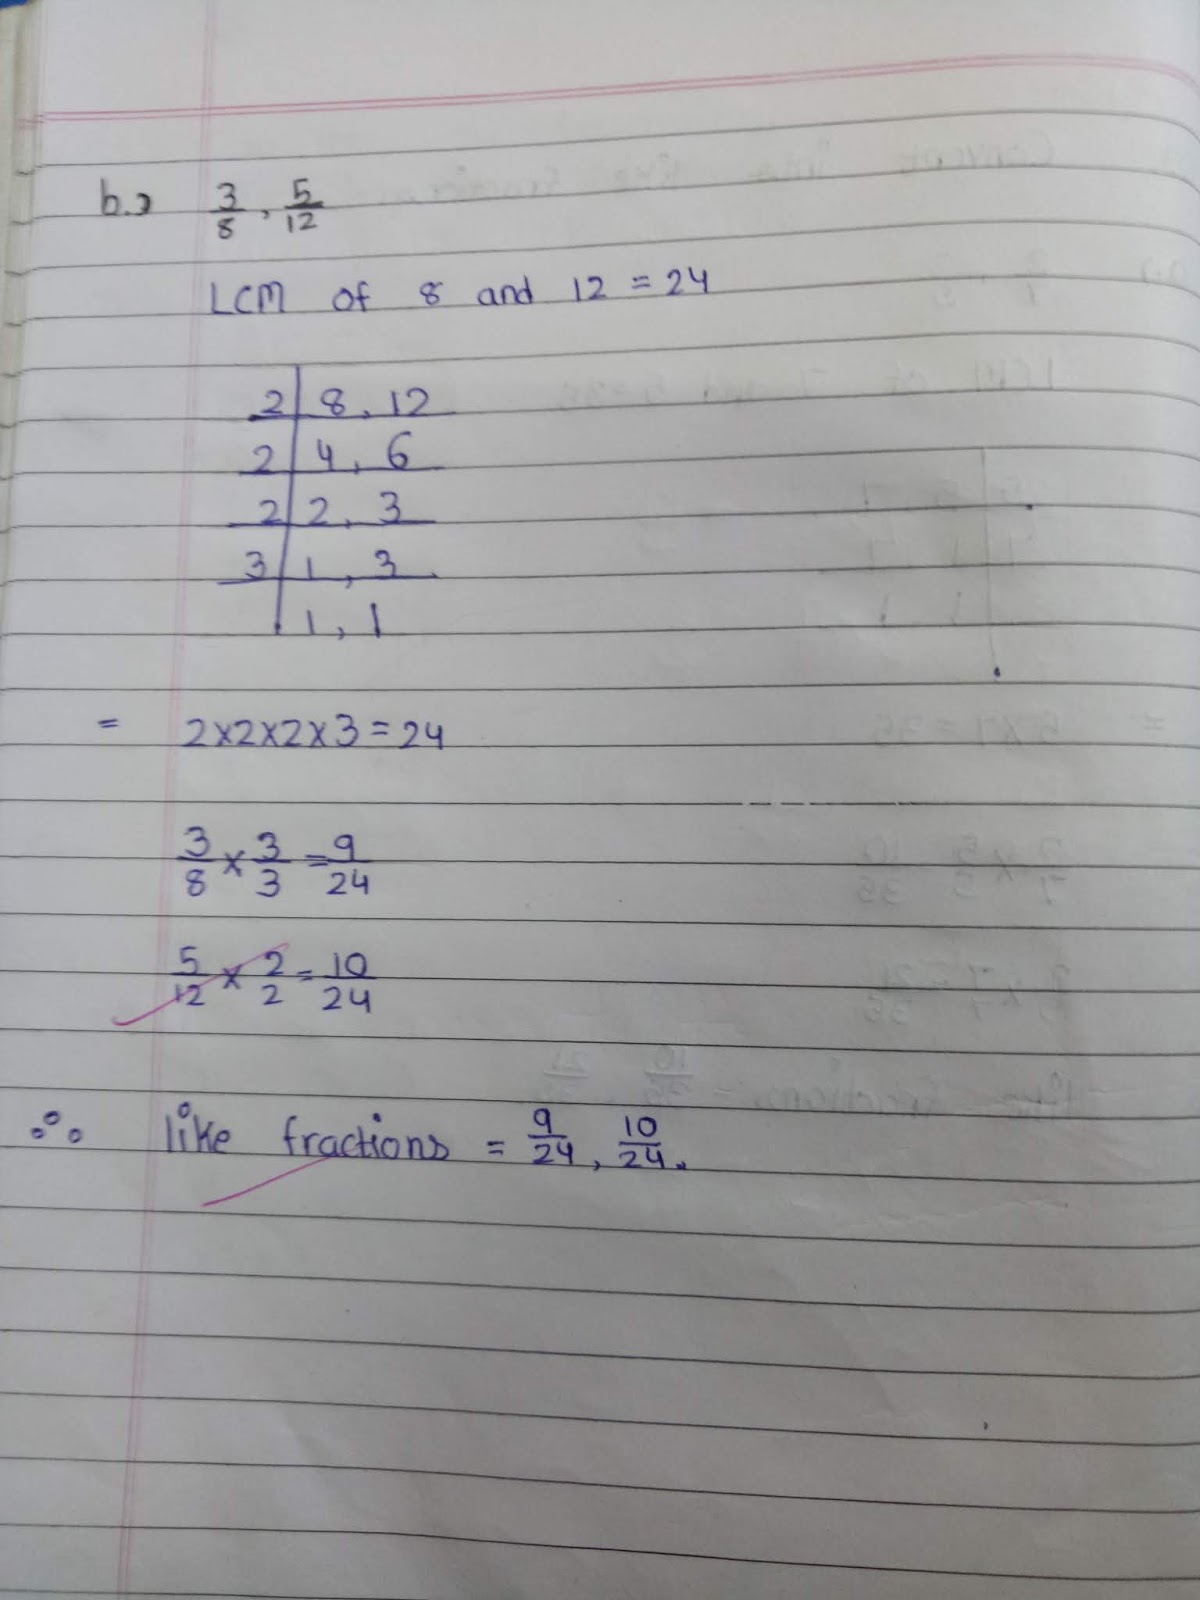 b.) 3/8, 5/12
LCM of 8 and 12 = 24
2 | 8, 12
2 | 4, 6
2 | 2, 3
3 | 1, 3
1, 1
= 2×2×2×3=24
3/8 × 3/3 = 9/24
5/12 × 2/2 = 10/24
∴ like fractions = 9/24, 10/24.